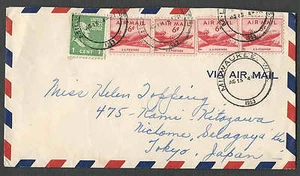 1 CENT 1
AIR MAIL 6¢
AIR MAIL 6¢
AIR MAIL 6¢
AIR MAIL 6¢
VIA AIR MAIL
MILWAUKEE, WIS.
AUG 15
1953
Miss Helen Topping
475-Kami Kitazawa
Nichome, Setagaya Ku
Tokyo, Japan